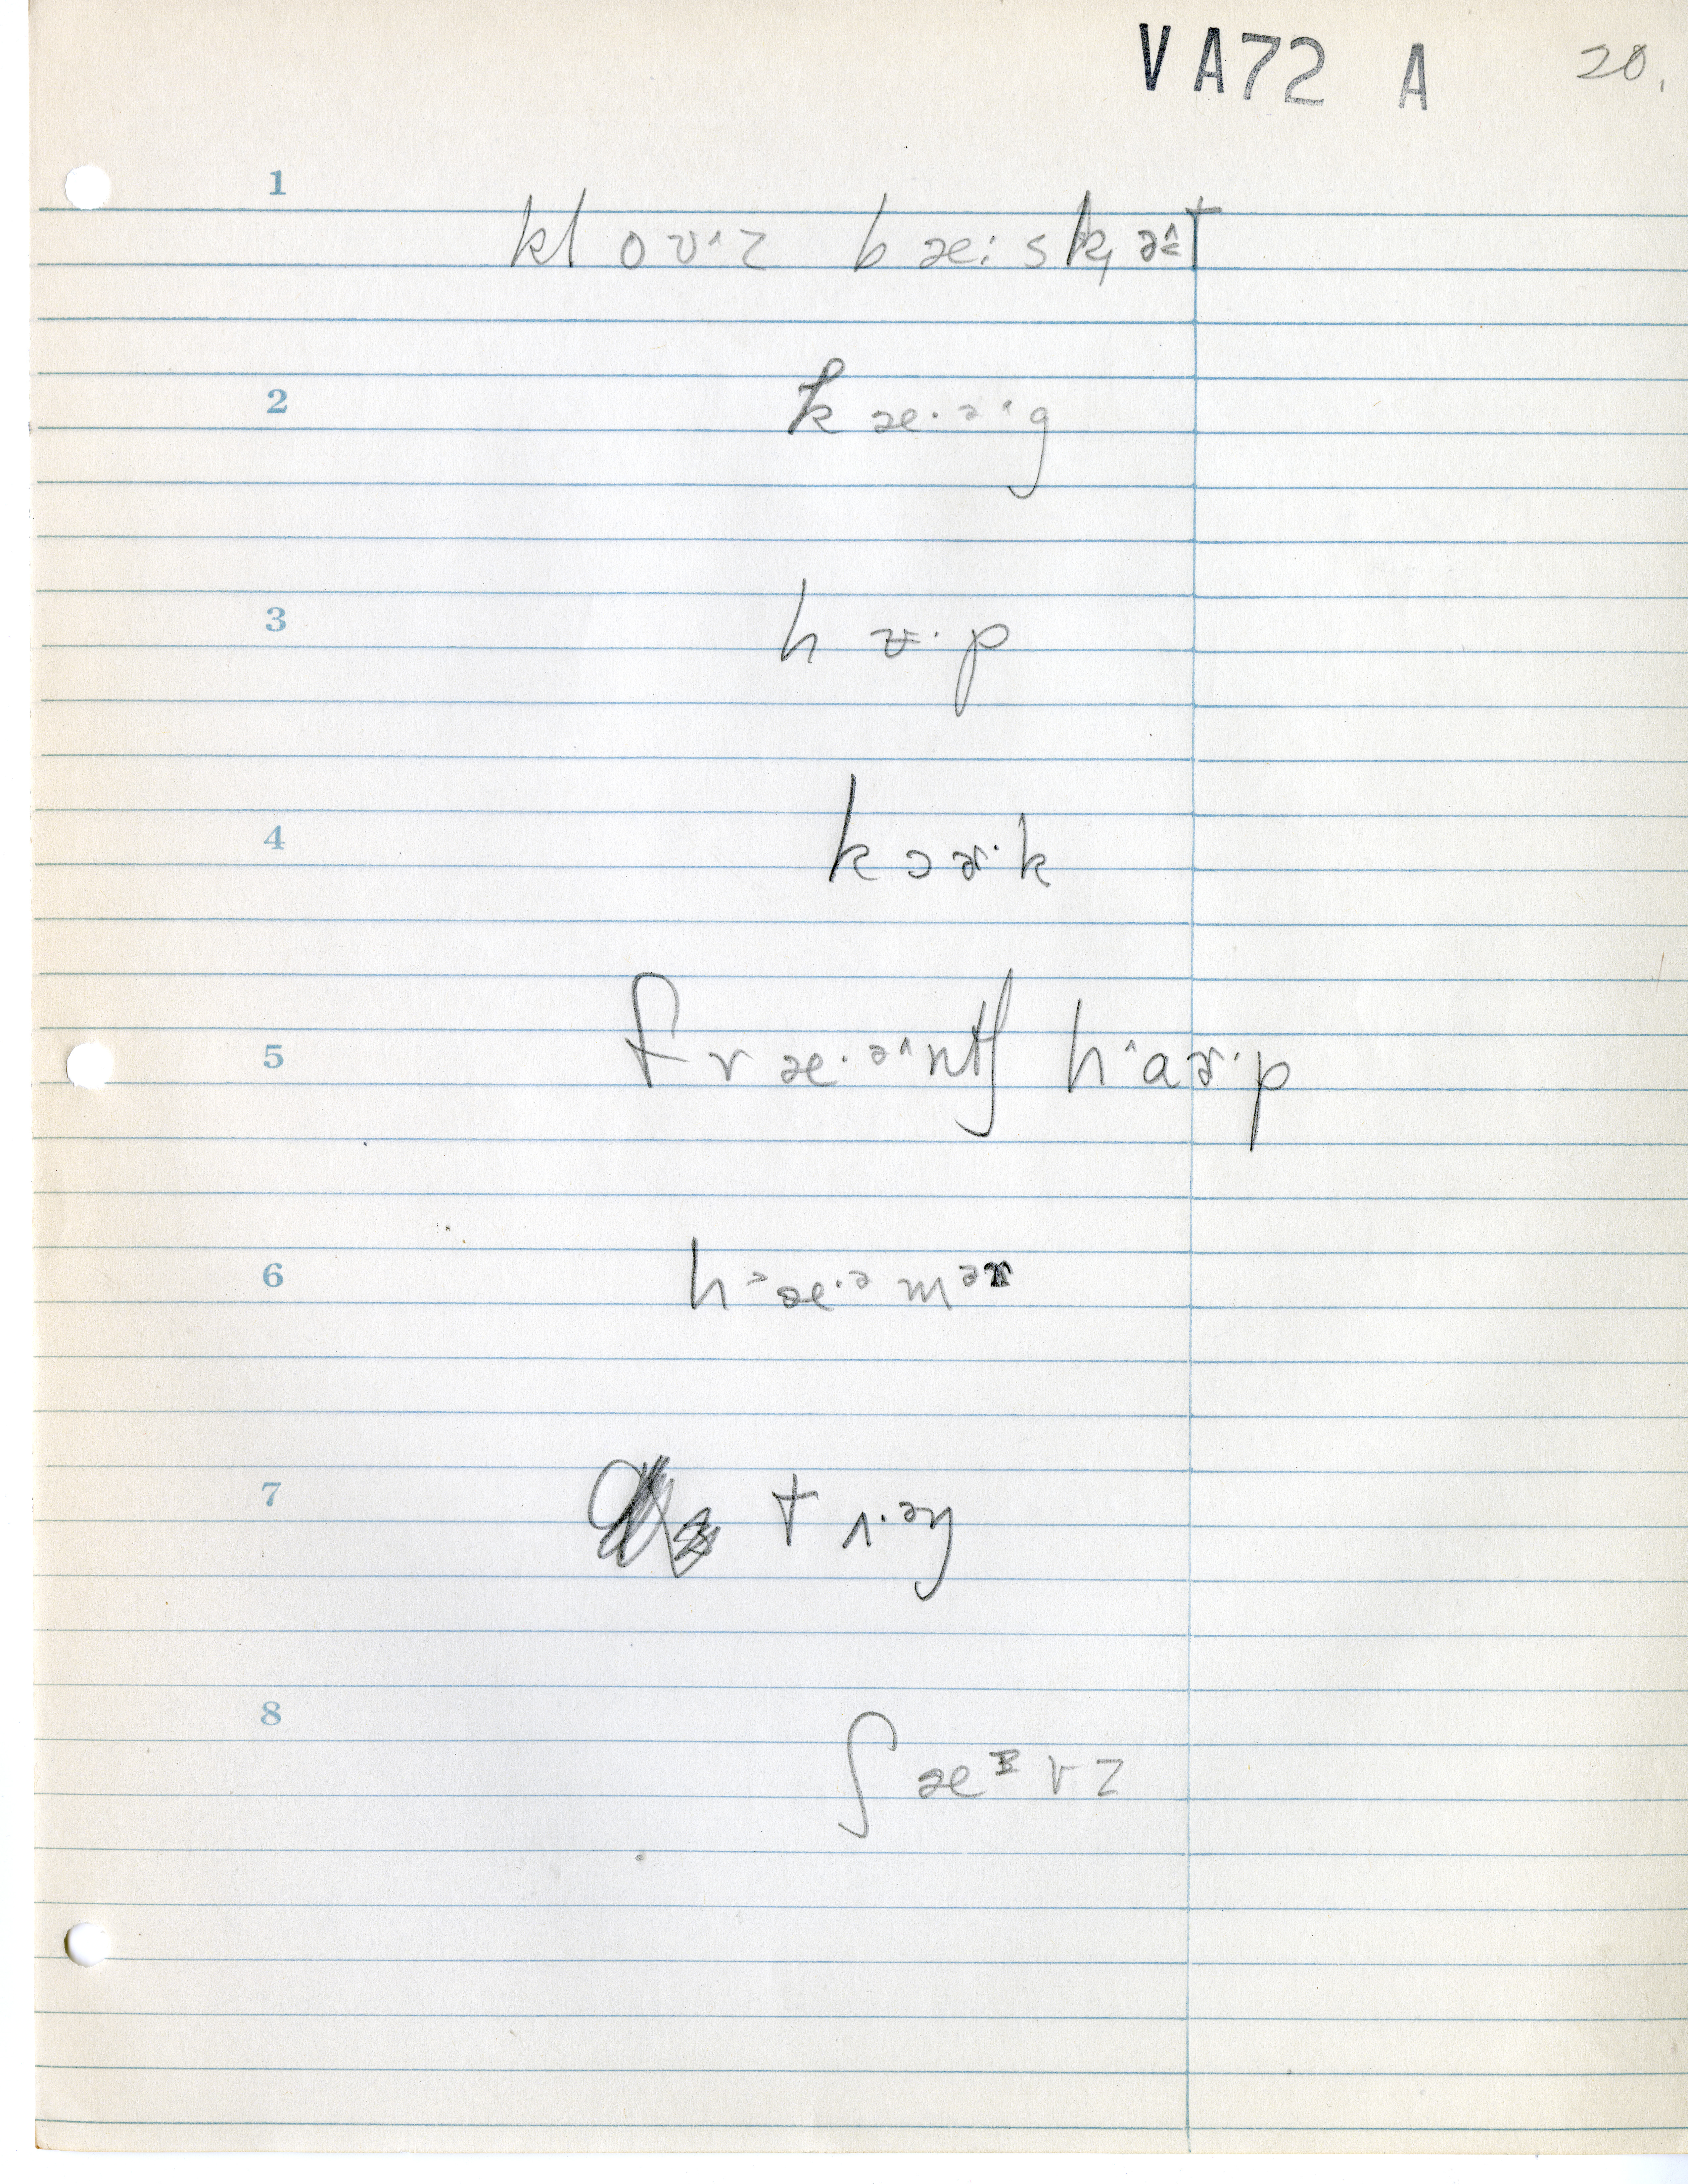 VA72 A 20.
1 klov^z bæ:skət
2 kæ·ə^g
3 hʊ·p
4 kɔɚ·k
5 fræ·ə^ntʃ h^aɚ·p
6 h^æ·əmə
7 tʌ·əŋ
8 ʃæ vz